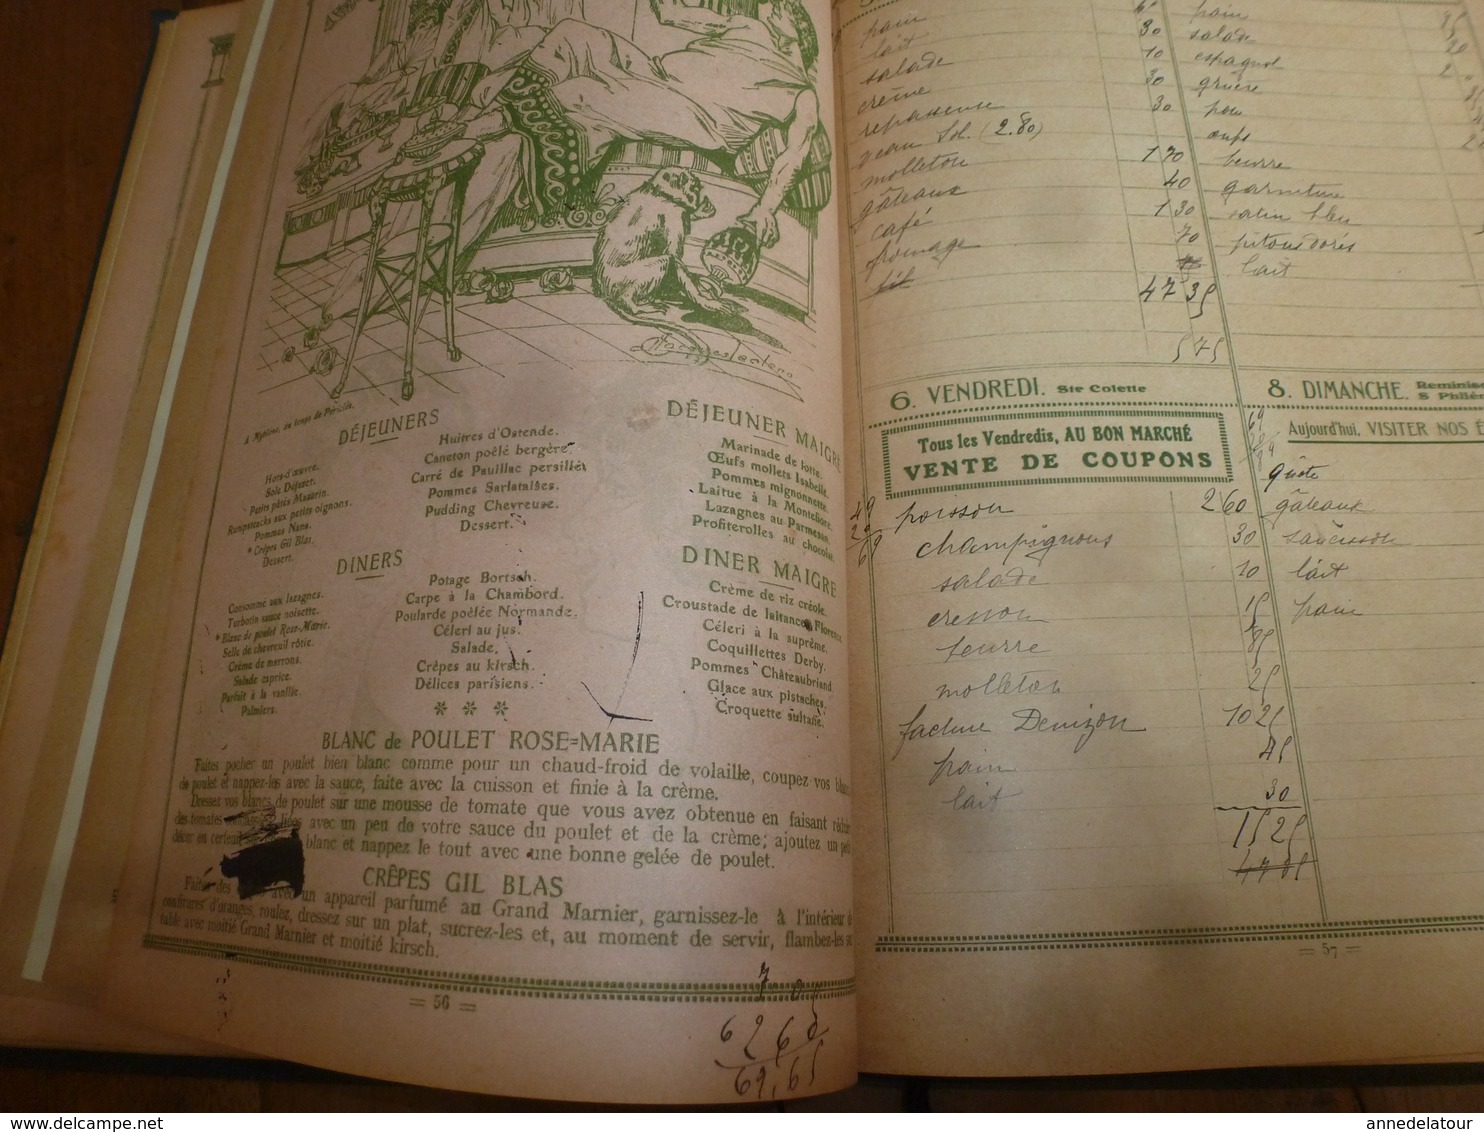 A Mytilène, au temps de Périclès.
DÉJEUNERS
Hors-d'œuvre.
Sole Déjazet.
Petits pâtés Mazarin.
Rumpsteacks aux petits oignons.
Pommes Nana.
* Crêpes Gil Blas.
Dessert.
Huîtres d'Ostende.
Caneton poêlé bergère.
Carré de Pauillac persillé.
Pommes Sarlataises.
Pudding Chevreuse.
Dessert.
DÉJEUNER MAIGRE
Marinade de lotte.
Œufs mollets Isabelle.
Pommes mignonnette.
Laitue à la Monteflore.
Lazagnes au Parmesan.
Profiterolles au chocolat.
DINERS
Consomme aux lazagnes.
Turbotin sauce noisette.
* Blanc de poulet Rose-Marie.
Selle de chevreuil rôtie.
Crème de marrons.
Salade caprice.
Parfait à la vanille.
Palmiers.
Potage Bortsch.
Carpe à la Chambord.
Poularde poêlée Normande.
Céleri au jus.
Salade.
Crêpes au kirsch.
Délices parisiens.
DINER MAIGRE
Crème de riz créole.
Croustade de laitances Florence
Céleri à la suprême.
Coquillettes Derby.
Pommes Châteaubriand
Glace aux pistaches.
Croquette sultane.
BLANC de POULET ROSE=MARIE
Faites pocher un poulet bien blanc comme pour un chaud-froid de volaille, coupez vos
de poulet et nappez-les avec la sauce, faite avec la cuisson et finie à la crème.
Dressez vos blancs de poulet sur une mousse de tomate que vous avez obtenue en faisant
des tomates avec un peu de votre sauce du poulet et de la crème; ajoutez un
décor en cerfeuil blanc et nappez le tout avec une bonne gelée de poulet.
CRÊPES GIL BLAS
Faites des avec un appareil parfumé au Grand Marnier, garnissez-le à l'intérieur
confitures d'oranges, roulez, dressez sur un plat, sucrez-les et, au moment de servir, flambez-les
table avec moitié Grand Marnier et moitié kirsch.
= 56 =
7 05
62 60
69,65
pain
lait 30
salade 10
crème 30
repasseuse 30
veau Sol. (2.80)
molleton 1 70
gâteaux 40
café 1 30
fromage 70
47 35
575
pain
salade
espagnol
gruère
pain
œufs
beurre
garniture
satin bleu
pitons dorés
lait
6. VENDREDI. Ste Colette
Tous les Vendredis, AU BON MARCHÉ
VENTE DE COUPONS
poisson 2 60
champignons 30
salade 10
cresson 15
beurre 85
molleton 25
facture Denizon 10 25
pain 45
lait 30
15 25
8. DIMANCHE.
Aujourd'hui, VISITER NOS
quête
gâteaux
saucisson
lait
pain
= 57 =
annedelatour